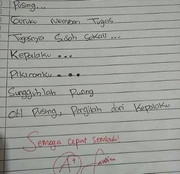 Pusing...
Guruku memberi Tugas
Tugasnya Susah Sekali...
Kepalaku....
Pikiranku....
Sungguhlah Pusing
Oh Pusing, Pergilah dari Kepalaku
Semoga cepat sembuh!
A+